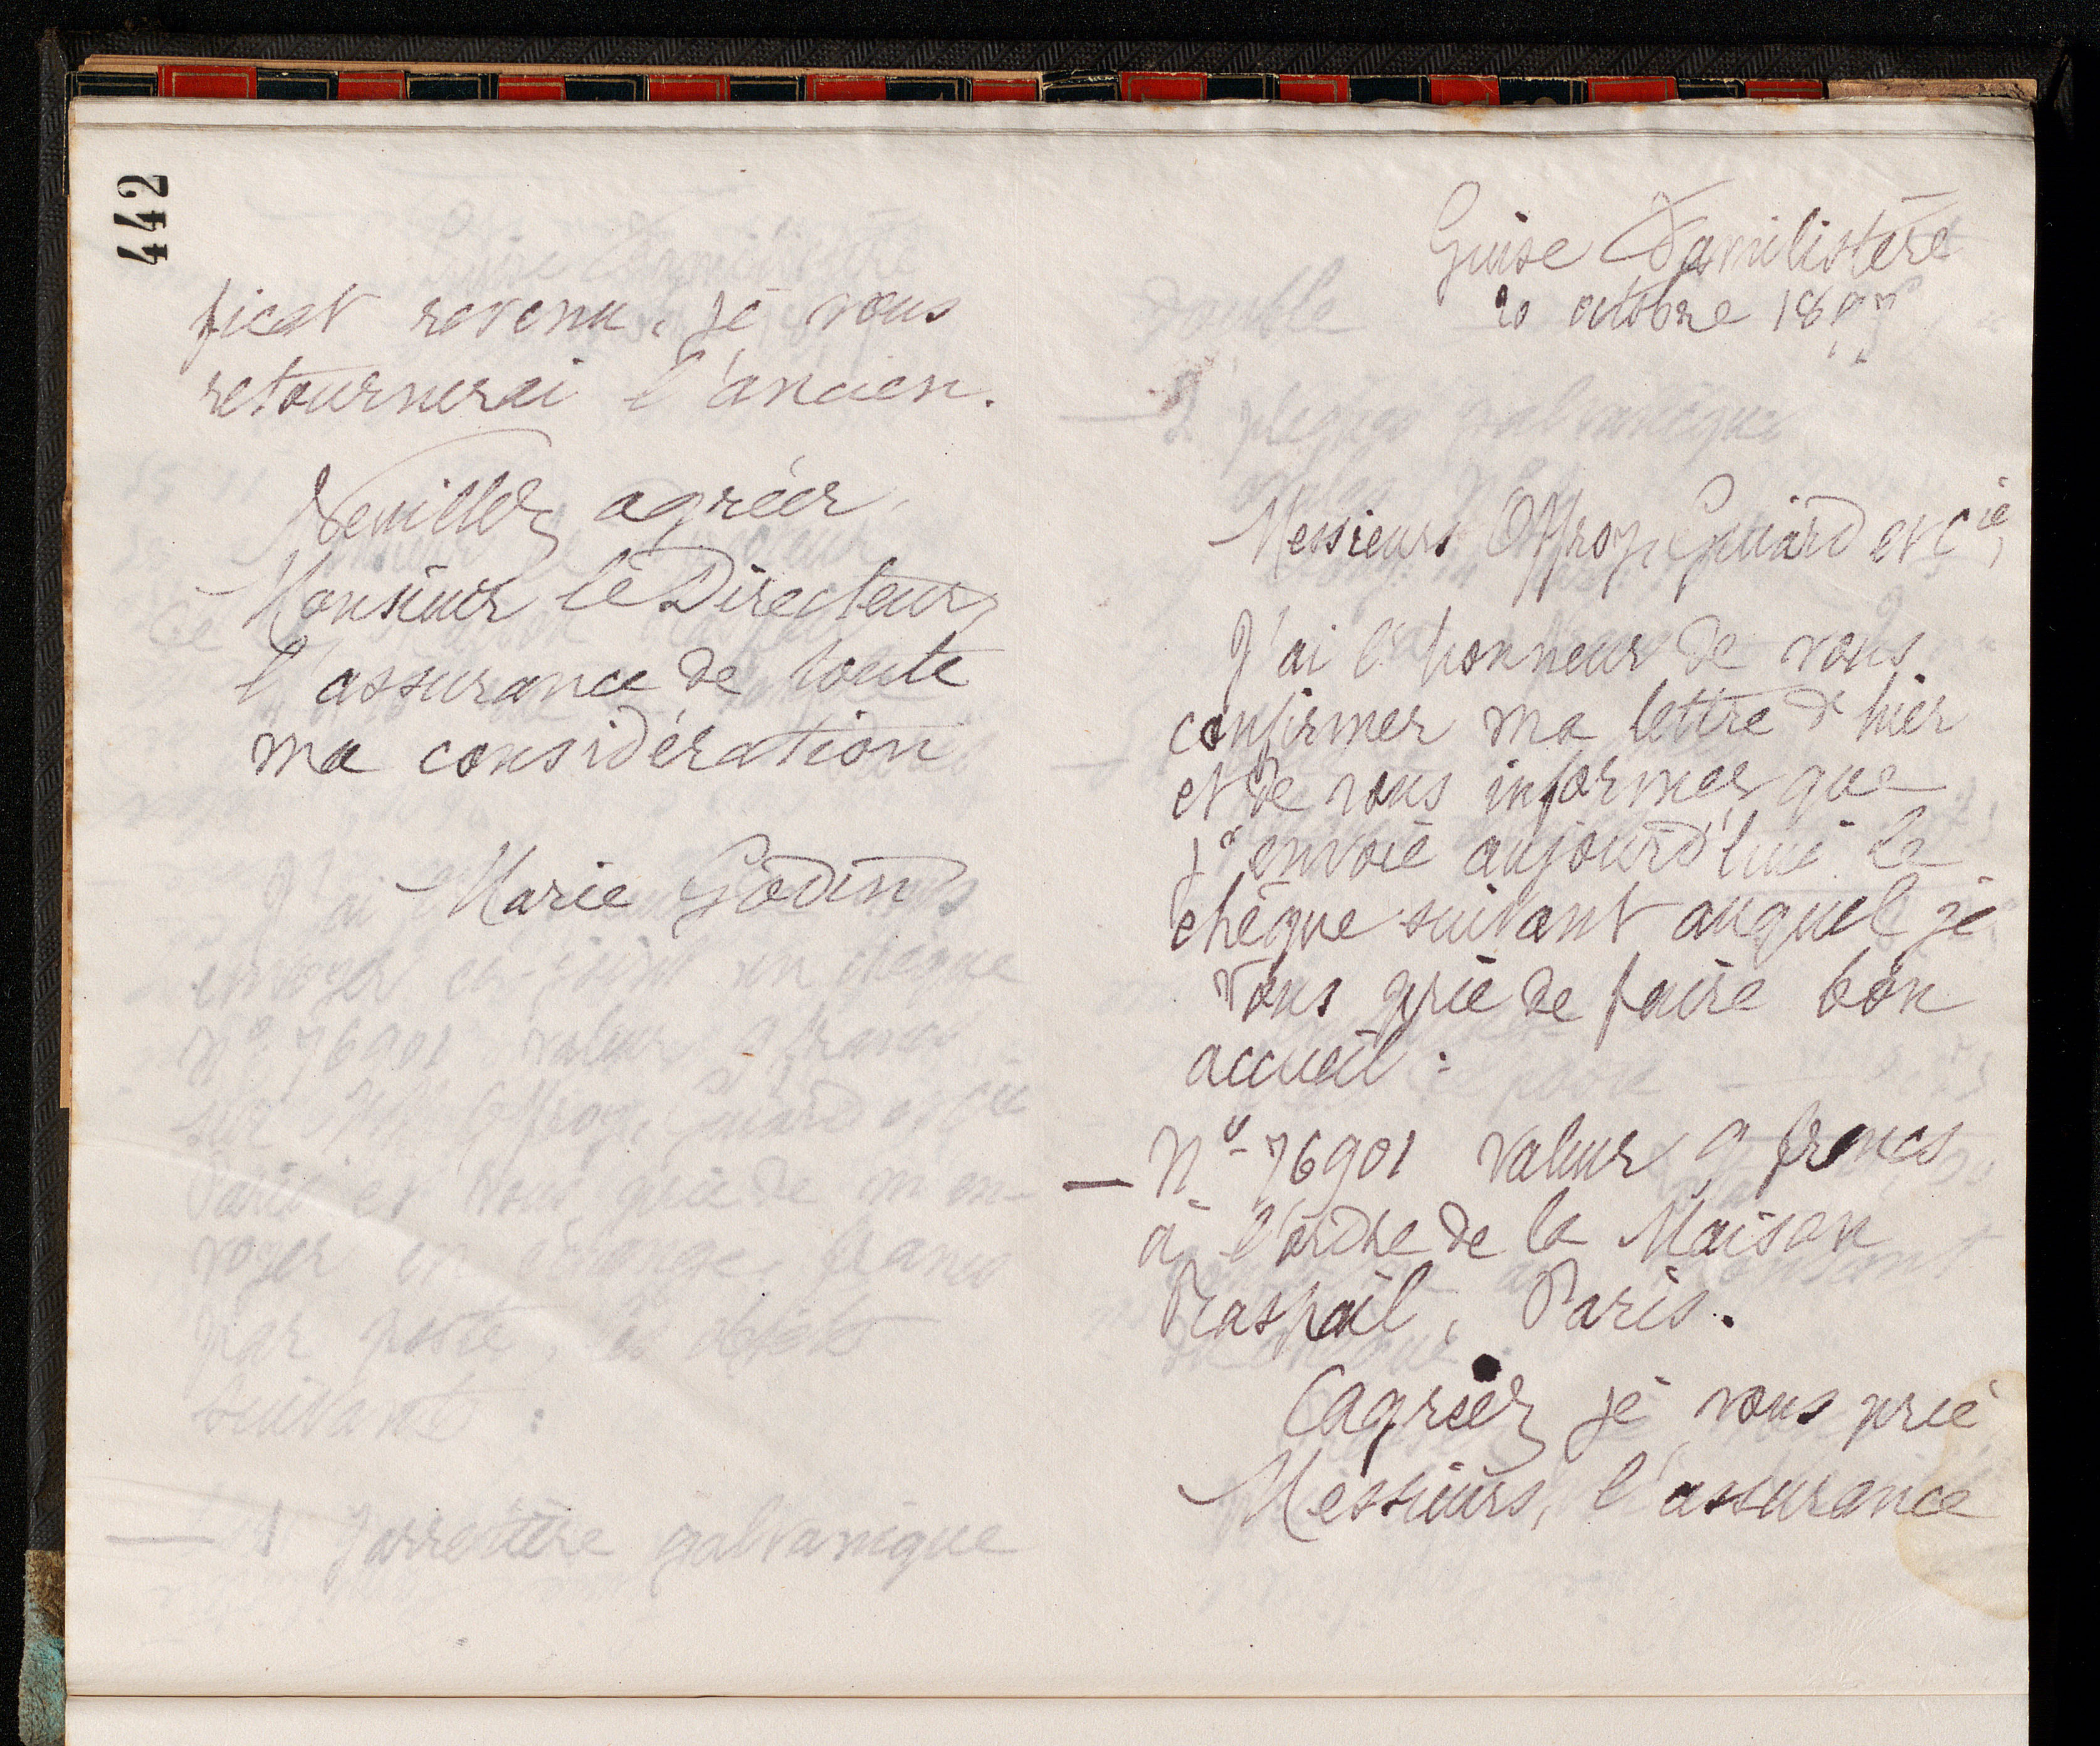 442
ficat revenu, je vous
retournerai l'ancien.
Veuillez agréer,
Monsieur le Directeur,
l'assurance de toute
ma considération
Marie Godin
Guise Familistère
20 octobre
Messieurs Offroy, Guiard et Cie,
J'ai l'honneur de vous
confirmer ma lettre d'hier
et de vous informer que
j'envoie aujourd'hui le
chèque suivant auquel je
vous prie de faire bon
accueil :
— No 76901 valeur 9 francs
à l'ordre de la Maison
Raspail, Paris.
Agréez je vous prie
Messieurs, l'assurance